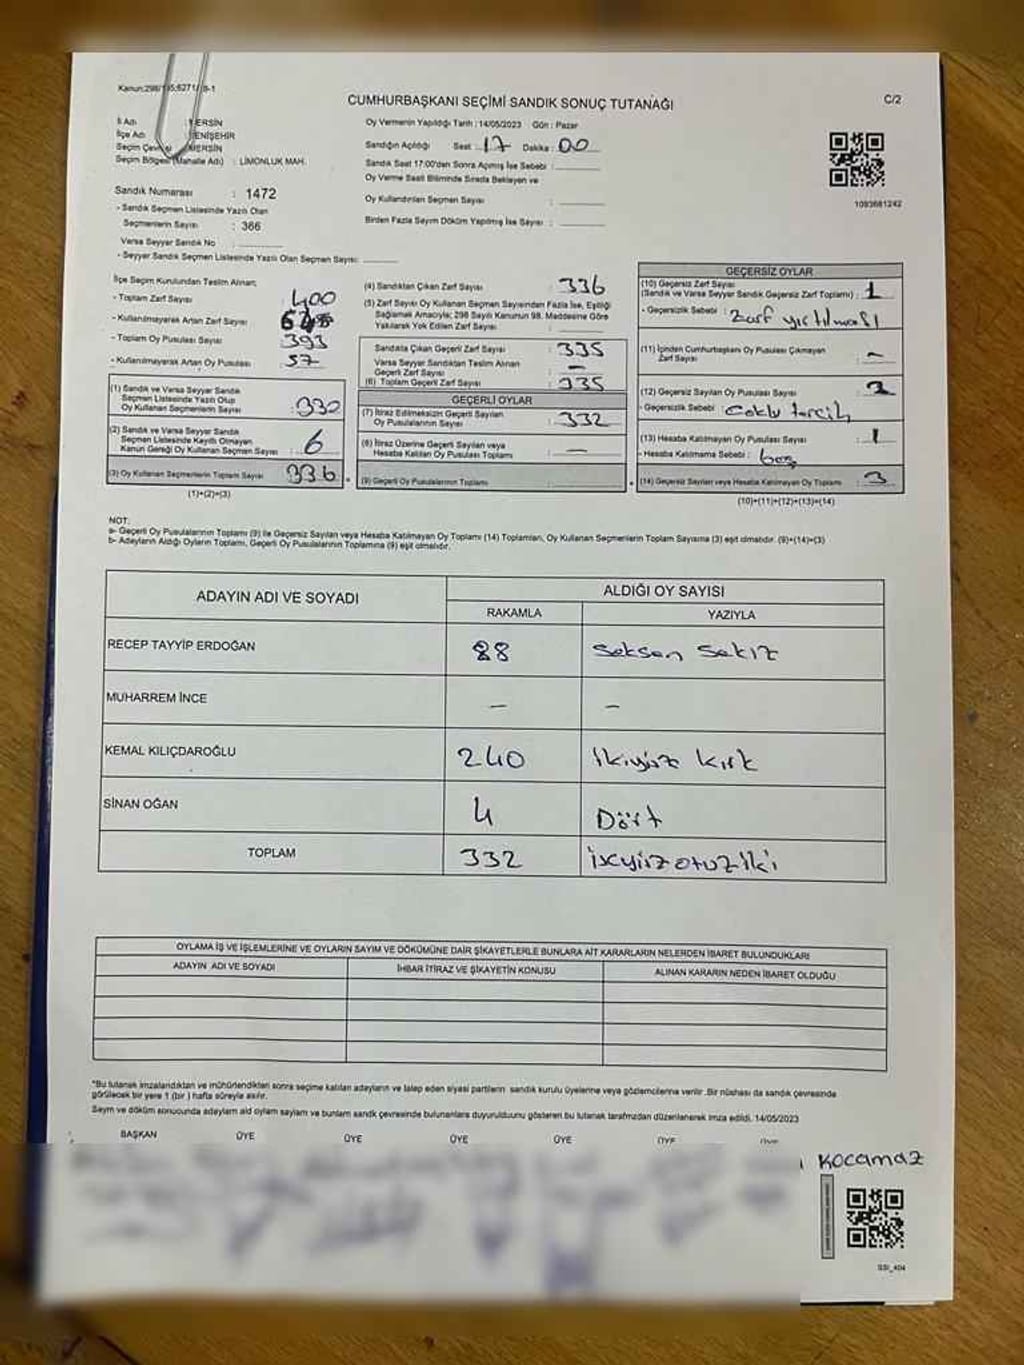 Kanun:298/
CUMHURBAŞKANI SEÇİMİ SANDIK SONUÇ TUTANAĞI
C/2
İl Adı : MERSİN
İlçe Adı : YENİŞEHİR
Seçim Çevresi : MERSİN
Seçim Bölgesi (Mahalle Adı) : LİMONLUK MAH.
Sandık Numarası : 1472
- Sandık Seçmen Listesinde Yazılı Olan
Seçmenlerin Sayısı : 366
Varsa Seyyar Sandık No :
- Seyyar Sandık Seçmen Listesinde Yazılı Olan Seçmen Sayısı:
Oy Vermenin Yapıldığı Tarih : 14/05/2023 Gün : Pazar
Sandığın Açıldığı Saat : 17 Dakika : 00
Sandık Saat 17:00'den Sonra Açılmış İse Sebebi :
Oy Verme Saati Bitiminde Sırada Bekleyen ve
Oy Kullandırılan Seçmen Sayısı :
Birden Fazla Sayım Döküm Yapılmış İse Sayısı :
1093681242
İlçe Seçim Kurulundan Teslim Alınan;
- Toplam Zarf Sayısı : 400
- Kullanılmayarak Artan Zarf Sayısı :
- Toplam Oy Pusulası Sayısı : 393
- Kullanılmayarak Artan Oy Pusulası : 57
(1) Sandık ve Varsa Seyyar Sandık
Seçmen Listesinde Yazılı Olup
Oy Kullanan Seçmenlerin Sayısı : 330
(2) Sandık ve Varsa Seyyar Sandık
Seçmen Listesinde Kayıtlı Olmayan
Kanun Gereği Oy Kullanan Seçmen Sayısı : 6
(3) Oy Kullanan Seçmenlerin Toplam Sayısı : 336
(1)+(2)=(3)
(4) Sandıktan Çıkan Zarf Sayısı : 336
(5) Zarf Sayısı Oy Kullanan Seçmen Sayısından Fazla İse, Eşitliği
Sağlamak Amacıyla; 298 Sayılı Kanunun 98. Maddesine Göre
Yakılarak Yok Edilen Zarf Sayısı :
Sandıkta Çıkan Geçerli Zarf Sayısı : 335
Varsa Seyyar Sandıktan Teslim Alınan
Geçerli Zarf Sayısı : -
(6) Toplam Geçerli Zarf Sayısı : 335
GEÇERLİ OYLAR
(7) İtiraz Edilmeksizin Geçerli Sayılan
Oy Pusulalarının Sayısı : 332
(8) İtiraz Üzerine Geçerli Sayılan veya
Hesaba Katılan Oy Pusulası Toplamı : -
(9) Geçerli Oy Pusulalarının Toplamı :
GEÇERSİZ OYLAR
(10) Geçersiz Zarf Sayısı
(Sandık ve Varsa Seyyar Sandık Geçersiz Zarf Toplamı) : 1
- Geçersizlik Sebebi : Zarf yırtılması
(11) İçinden Cumhurbaşkanı Oy Pusulası Çıkmayan
Zarf Sayısı : -
(12) Geçersiz Sayılan Oy Pusulası Sayısı :
- Geçersizlik Sebebi : Çoklu tercih
(13) Hesaba Katılmayan Oy Pusulası Sayısı : 1
- Hesaba Katılmama Sebebi : boş
(14) Geçersiz Sayılan veya Hesaba Katılmayan Oy Toplamı : 3
(10)+(11)+(12)+(13)=(14)
NOT:
a- Geçerli Oy Pusulalarının Toplamı (9) ile Geçersiz Sayılan veya Hesaba Katılmayan Oy Toplamı (14) Toplamları, Oy Kullanan Seçmenlerin Toplam Sayısına (3) eşit olmalıdır. (9)+(14)=(3)
b- Adayların Aldığı Oyların Toplamı, Geçerli Oy Pusulalarının Toplamına (9) eşit olmalıdır.
ADAYIN ADI VE SOYADI
ALDIĞI OY SAYISI
RAKAMLA YAZIYLA
RECEP TAYYİP ERDOĞAN 88 Seksen Sekiz
MUHARREM İNCE - -
KEMAL KILIÇDAROĞLU 240 İkiyüz kırk
SİNAN OĞAN 4 Dört
TOPLAM 332
OYLAMA İŞ VE İŞLEMLERİNE VE OYLARIN SAYIM VE DÖKÜMÜNE DAİR ŞİKAYETLERLE BUNLARA AİT KARARLARIN NELERDEN İBARET BULUNDUKLARI
ADAYIN ADI VE SOYADI İHBAR İTİRAZ VE ŞİKAYETİN KONUSU ALINAN KARARIN NEDEN İBARET OLDUĞU
*Bu tutanak imzalandıktan ve mühürlendikten sonra seçime katılan adayların ve talep eden siyasi partilerin sandık kurulu üyelerine veya gözlemcilerine verilir. Bir nüshası da sandık çevresinde
görülecek bir yere 1 (bir ) hafta süreyle asılır.
Sayım ve döküm sonucunda adayların
14/05/2023
BAŞKAN ÜYE ÜYE ÜYE ÜYE ÜYE ÜYE
KOCAMAZ
SSI_404